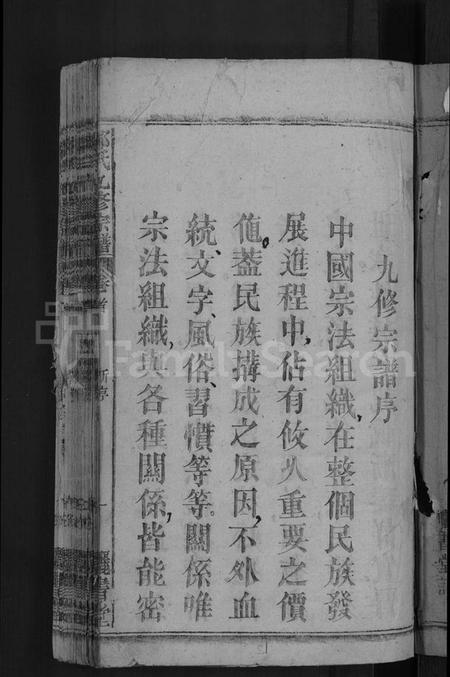 九修宗譜序
中國宗法組織,在整個民族發
展進程中,佔有攸久重要之價
値,蓋民族搆成之原因,不外血
統、文字、風俗、習慣等等關係,唯
宗法組織,與各種關係,皆能密
氏九修宗譜
卷首
新序
一
FamilySearch